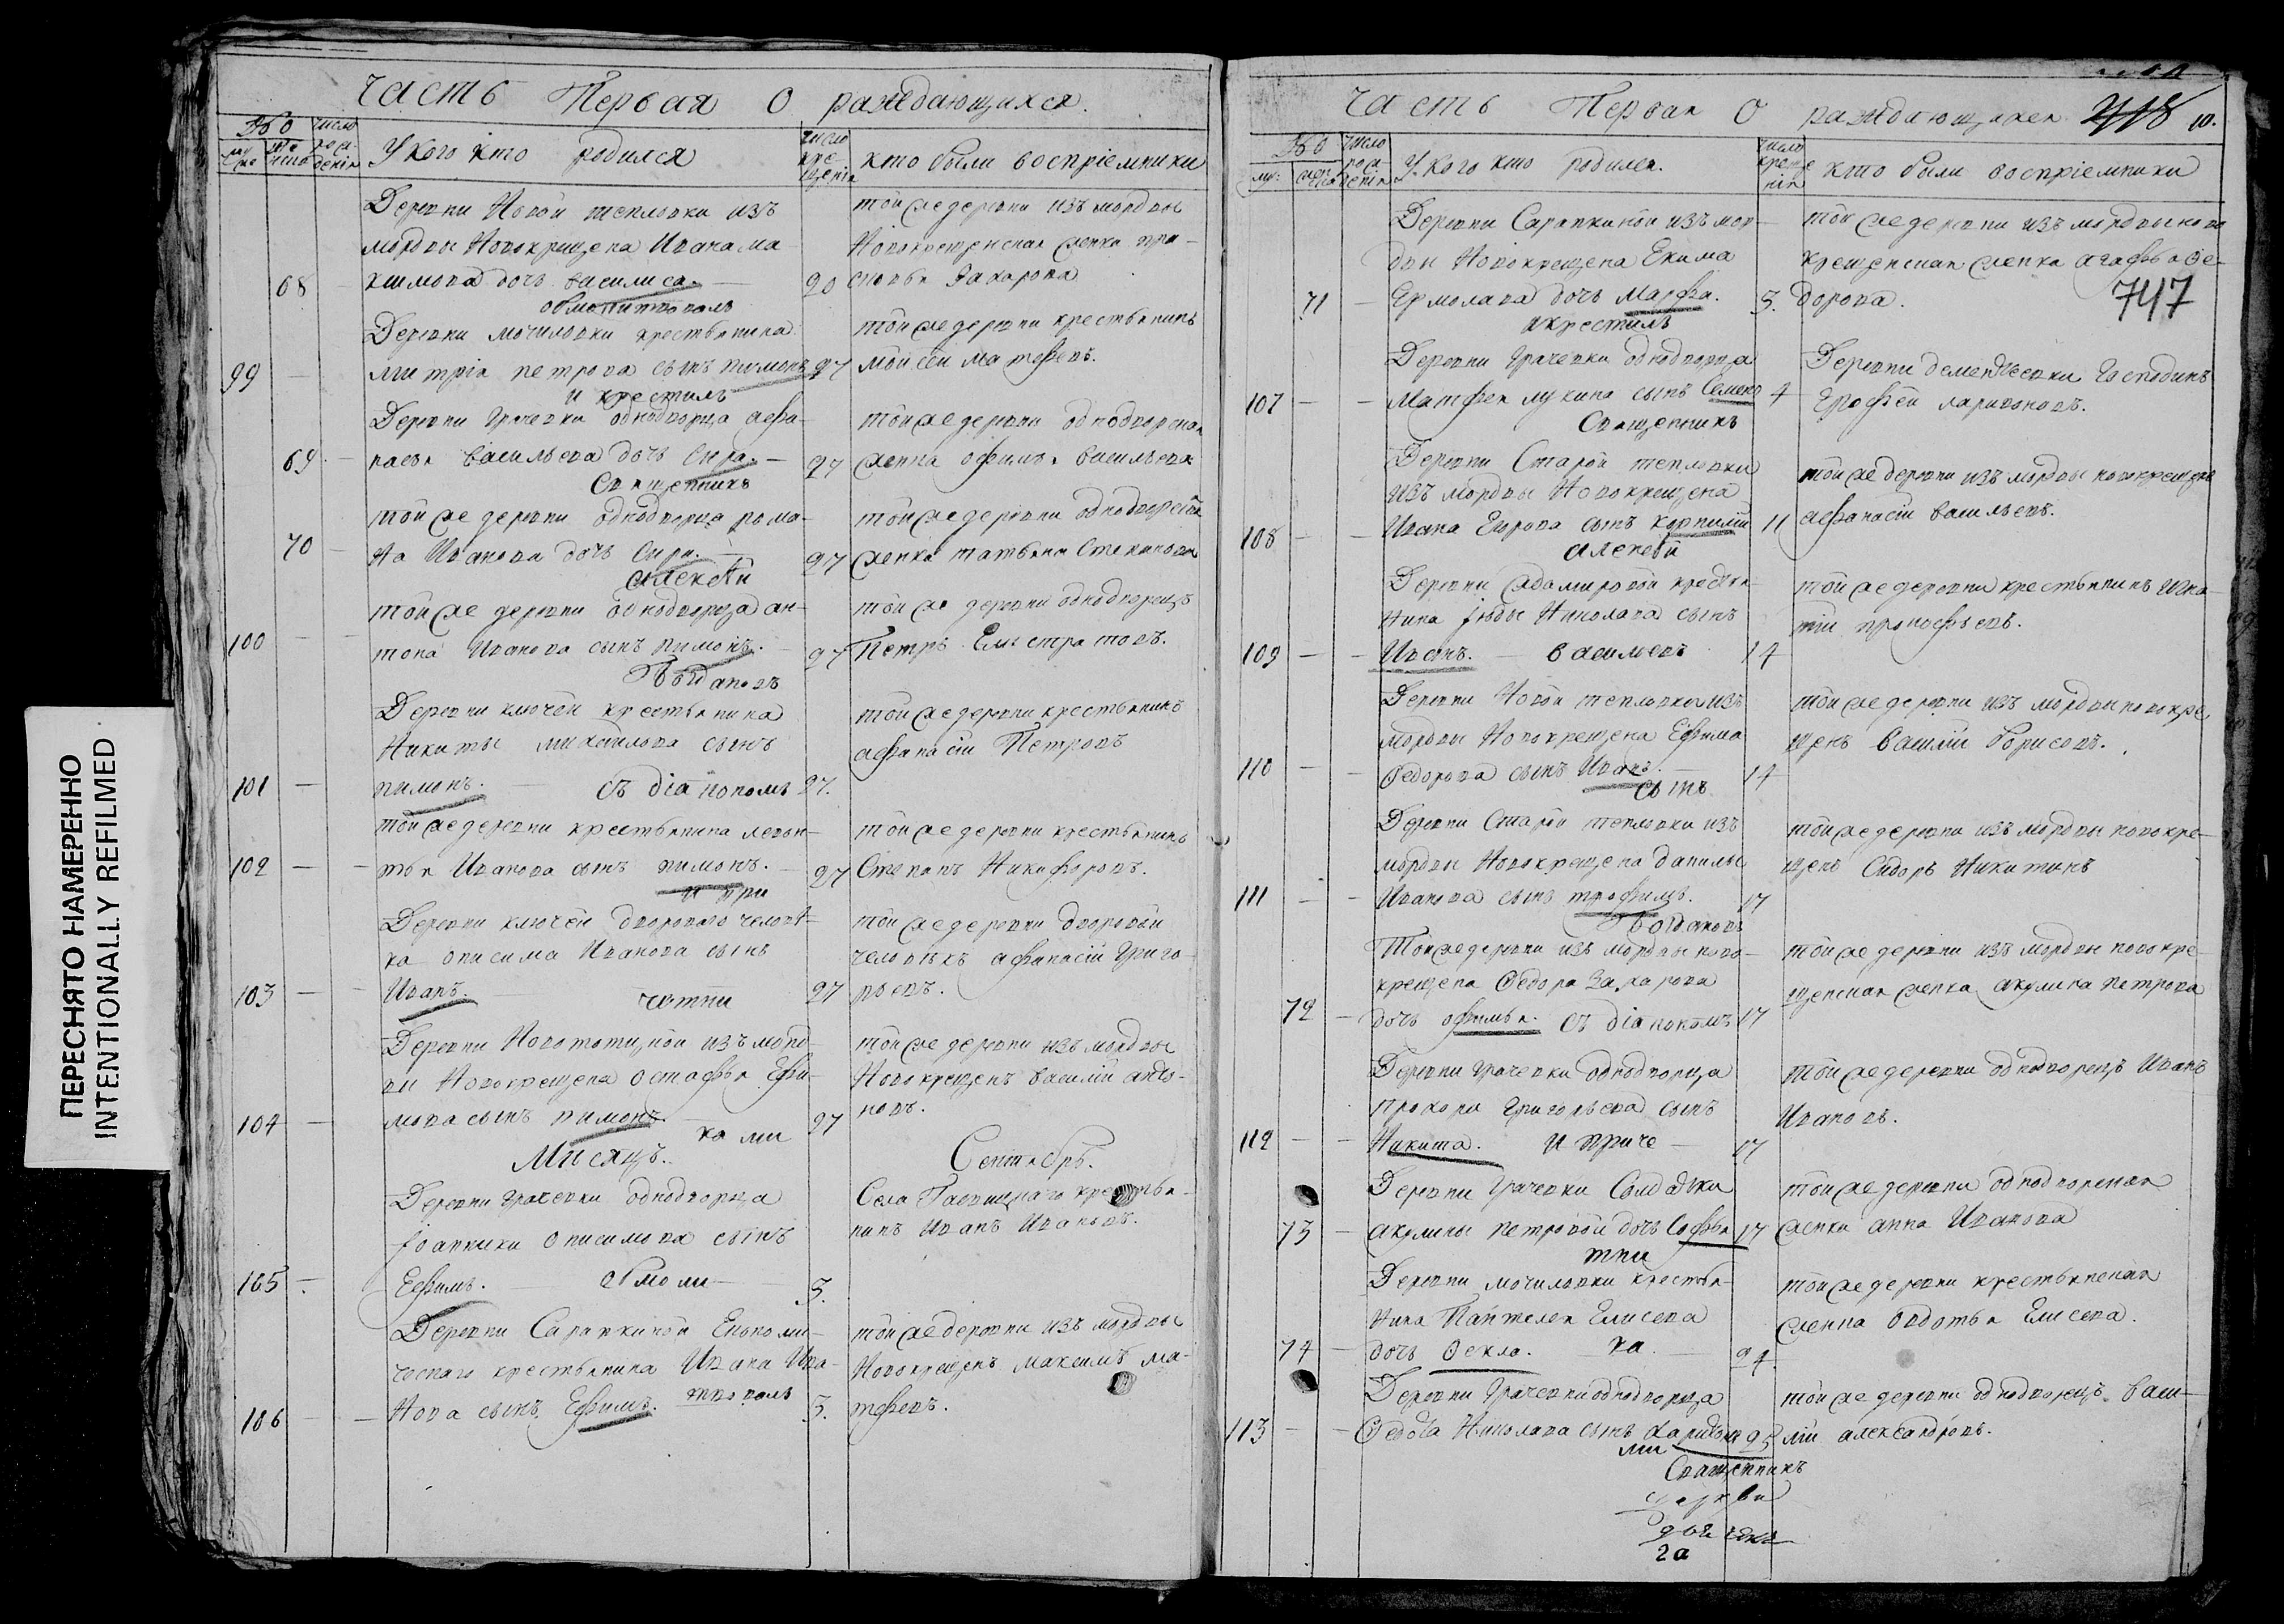 ПЕРЕСНЯТО НАМЕРЕННО
INTENTIONALLY REFILMED
Часть Первая О раждающихся.
У кого кто родился
число крещенія
кто были воспріемники
Деревни Новой тепловки изъ
мордвы Новокрещена Ивана ма-
68 ксимова дочь василиса. 20
той же деревни изъ мордвы
Новокрещенская женка пра-
сковья Захарова
Деревни мочиловки крестьянина
99 митрія петрова сынъ пимонъ 27
и крестилъ
той же деревни крестьянинъ
мойсей матфевъ.
Деревни Грачевки однодворца афа-
69 насья васильева дочь Сира. 27
Священникъ
той же деревни однодворская
женка офимья васильева
той же деревни однодворца рома-
70 на Иванова дочь Сира. 27
алексѣй
той же деревни однодворская
женка татьяна Степанова
той же деревни однодворца ан-
100 тона Иванова сынъ пимонъ. 27
Богдановъ
той же деревни однодворецъ
Петръ Елистратовъ.
Деревни ключей крестьянина
Никиты михайлова сынъ
101 пимонъ. съ діакономъ 27.
той же деревни крестьянинъ
афанасій Петровъ
той же деревни крестьянина левон-
102 тья Иванова сынъ пимонъ. 27
и при
той же деревни крестьянинъ
Степанъ Никифоровъ.
Деревни ключей двороваго человѣ-
ка онисима Иванова сынъ
103 Иванъ. четни 27
той же деревни дворовой
человѣкъ афанасій Григо-
рьевъ.
Деревни Новотощной изъ морд-
вы Новокрещена остафья Ефи-
104 мова сынъ пимонъ. 27
ками
той же деревни изъ мордвы
Новокрещенъ василій анто-
новъ.
Мѣсяцъ. Сентябрь.
Деревни Грачевки однодворца
Іоанники онисимова сынъ
105 Ефимъ. обмоли 3.
Села крестья-
нинъ Иванъ Ивановъ.
Деревни Сапапкиной Економи-
ческаго крестьянина Ивана Ива-
106 нова сынъ Ефимъ. 3.
той же деревни изъ мордвы
Новокрещенъ максимъ ма-
тфевъ.
Часть Первая О раждающихся 10.
У кого кто родился.
число крещенія
кто были воспріемники
747
Деревни Сарапкиной изъ мор-
двы Новокрещена Екима
71 Ермолаева дочь марфа. 3.
и крестилъ
той же деревни изъ мордвы ново
крещенская женка агафья фе-
дорова.
Деревни Грачевки однодворца
107 матфея лукина сынъ Семенъ 4
Священникъ
Деревни Господинъ
Ерофей ларивоновъ.
Деревни Старой тепловки
изъ мордвы Новокрещена
108 Ивана Егорова сынъ корнилій 11
алексѣй
той же деревни изъ мордвы новокрещенъ
афанасій васильевъ.
Деревни Садомировой крестья-
нина Николаева сынъ
109 Иванъ. васильевъ 14
той же деревни крестьянинъ Игна-
тій прокофьевъ.
Деревни Новой тепловки изъ
мордвы Новокрещена Ефима
110 Федорова сынъ Иванъ. 14
той же деревни изъ мордвы новокре
щенъ василій борисовъ.
Деревни Старой тепловки изъ
мордвы Новокрещена данилы
111 Иванова сынъ трофимъ. 17
Богдановъ
той же деревни изъ мордвы новокре-
щенъ Сидоръ Никитинъ
Той же деревни изъ мордвы ново-
крещена Федора Захарова
72 дочь офимья. съ діакономъ 17
той же деревни изъ мордвы новокре-
щенская женка акулина петрова
Деревни Грачевки однодворца
прохора Григорьева сынъ
112 Никита. и приче 17
той же деревни однодворецъ Иванъ
Ивановъ.
Деревни Грачевки Солдатки
73 акулины петровой дочь Софья 17
тни
той же деревни однодворская
женка анна Иванова
Деревни мочиловки крестья-
нина Пантелея Елисева
74 дочь Фекла. ка 24
той же деревни крестьянская
женка овдотья Елисева.
Деревни Грачевки однодворца
113 Федота Николаева сынъ харитонъ 25
ми
той же деревни однодворецъ васи-
лій александровъ.
Священникъ
церкви